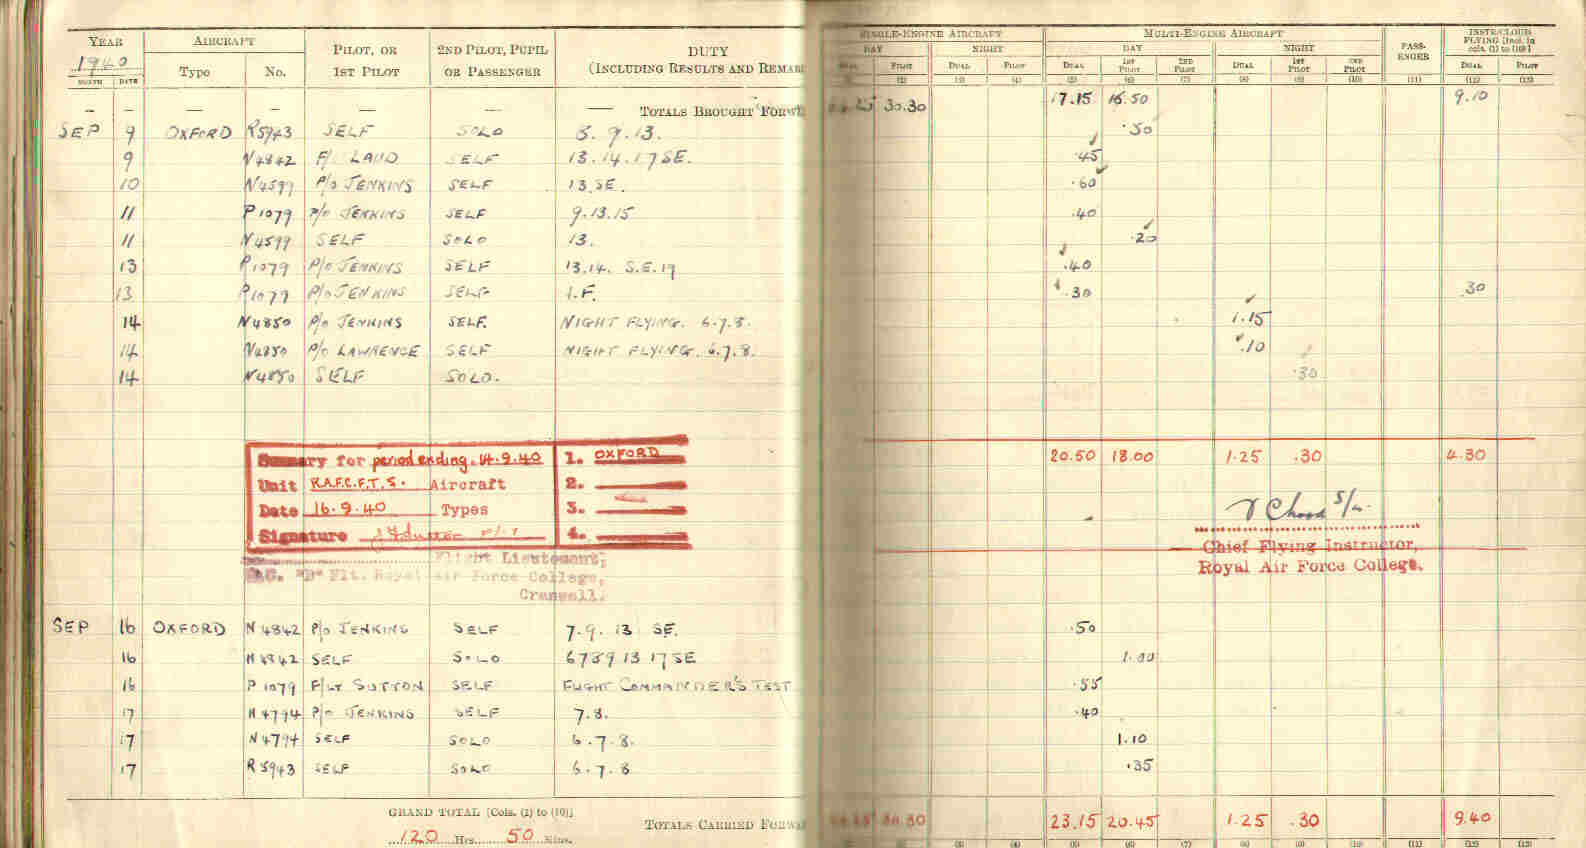 YEAR AIRCRAFT PILOT, OR 2ND PILOT, PUPIL DUTY SINGLE-ENGINE AIRCRAFT MULTI-ENGINE AIRCRAFT PASS- INSTR/CLOUD
1940 1ST PILOT OR PASSENGER (INCLUDING RESULTS AND REMAR DAY NIGHT DAY NIGHT ENGER FLYING [Incl. in
MONTH DATE Type No. PILOT DUAL PILOT DUAL 1ST PILOT 2ND PILOT DUAL 1ST PILOT 2ND PILOT cols. (1) to (10)] DUAL PILOT
(2) (3) (4) (5) (6) (7) (8) (9) (10) (11) (12) (13)
— — — — — — — TOTALS BROUGHT FORW 30.30 17.15 16.50 9.10
SEP 9 OXFORD R5943 SELF SOLO 8. 9. 13. .50
9 N4842 F/O LAUD SELF 13. 14. 17 SE. .45
10 N4599 P/O JENKINS SELF 13. SE. .60
11 P1079 P/O JENKINS SELF 9. 13. 15 .40
11 N4599 SELF SOLO 13. .20
13 P1079 P/O JENKINS SELF 13. 14. S.E. 19 .40
13 P1079 P/O JENKINS SELF I.F. .30 .30
14 N4850 P/O JENKINS SELF. NIGHT FLYING. 6.7.8. 1.15
14 N4850 P/O LAWRENCE SELF NIGHT FLYING. 6.7.8. .10
14 N4850 SELF SOLO. .30
Summary for period ending. 14.9.40 1. OXFORD 20.50 18.00 1.25 .30 4.30
Unit R.A.F.C.F.T.S. Aircraft 2.
Date 16.9.40 Types 3.
Signature 4.
Flight Lieutenant, Chief Flying Instructor,
"B" Flt. Royal Air Force College, Royal Air Force College.
Cranwell.
SEP 16 OXFORD N4842 P/O JENKINS SELF 7. 9. 13 SE. .50
16 N4842 SELF SOLO 6 7 8 9 13 17 SE 1.00
16 P1079 F/LT SUTTON SELF FLIGHT COMMANDER'S TEST .55
17 N4794 P/O JENKINS SELF 7. 8. .40
17 N4794 SELF SOLO 6. 7. 8. 1.10
17 R5943 SELF SOLO 6. 7. 8 .35
GRAND TOTAL [Cols. (1) to (10)]
120 Hrs. 50 Mins. TOTALS CARRIED FORW 30.30 23.15 20.45 1.25 .30 9.40
(3) (4) (5) (6) (7) (8) (9) (10) (11) (12) (13)